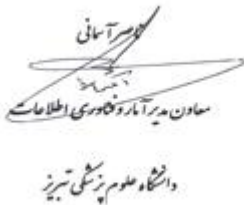 ناصر آسمانی
معاون مدیر آمار و فناوری اطلاعات
دانشگاه علوم پزشکی تبریز